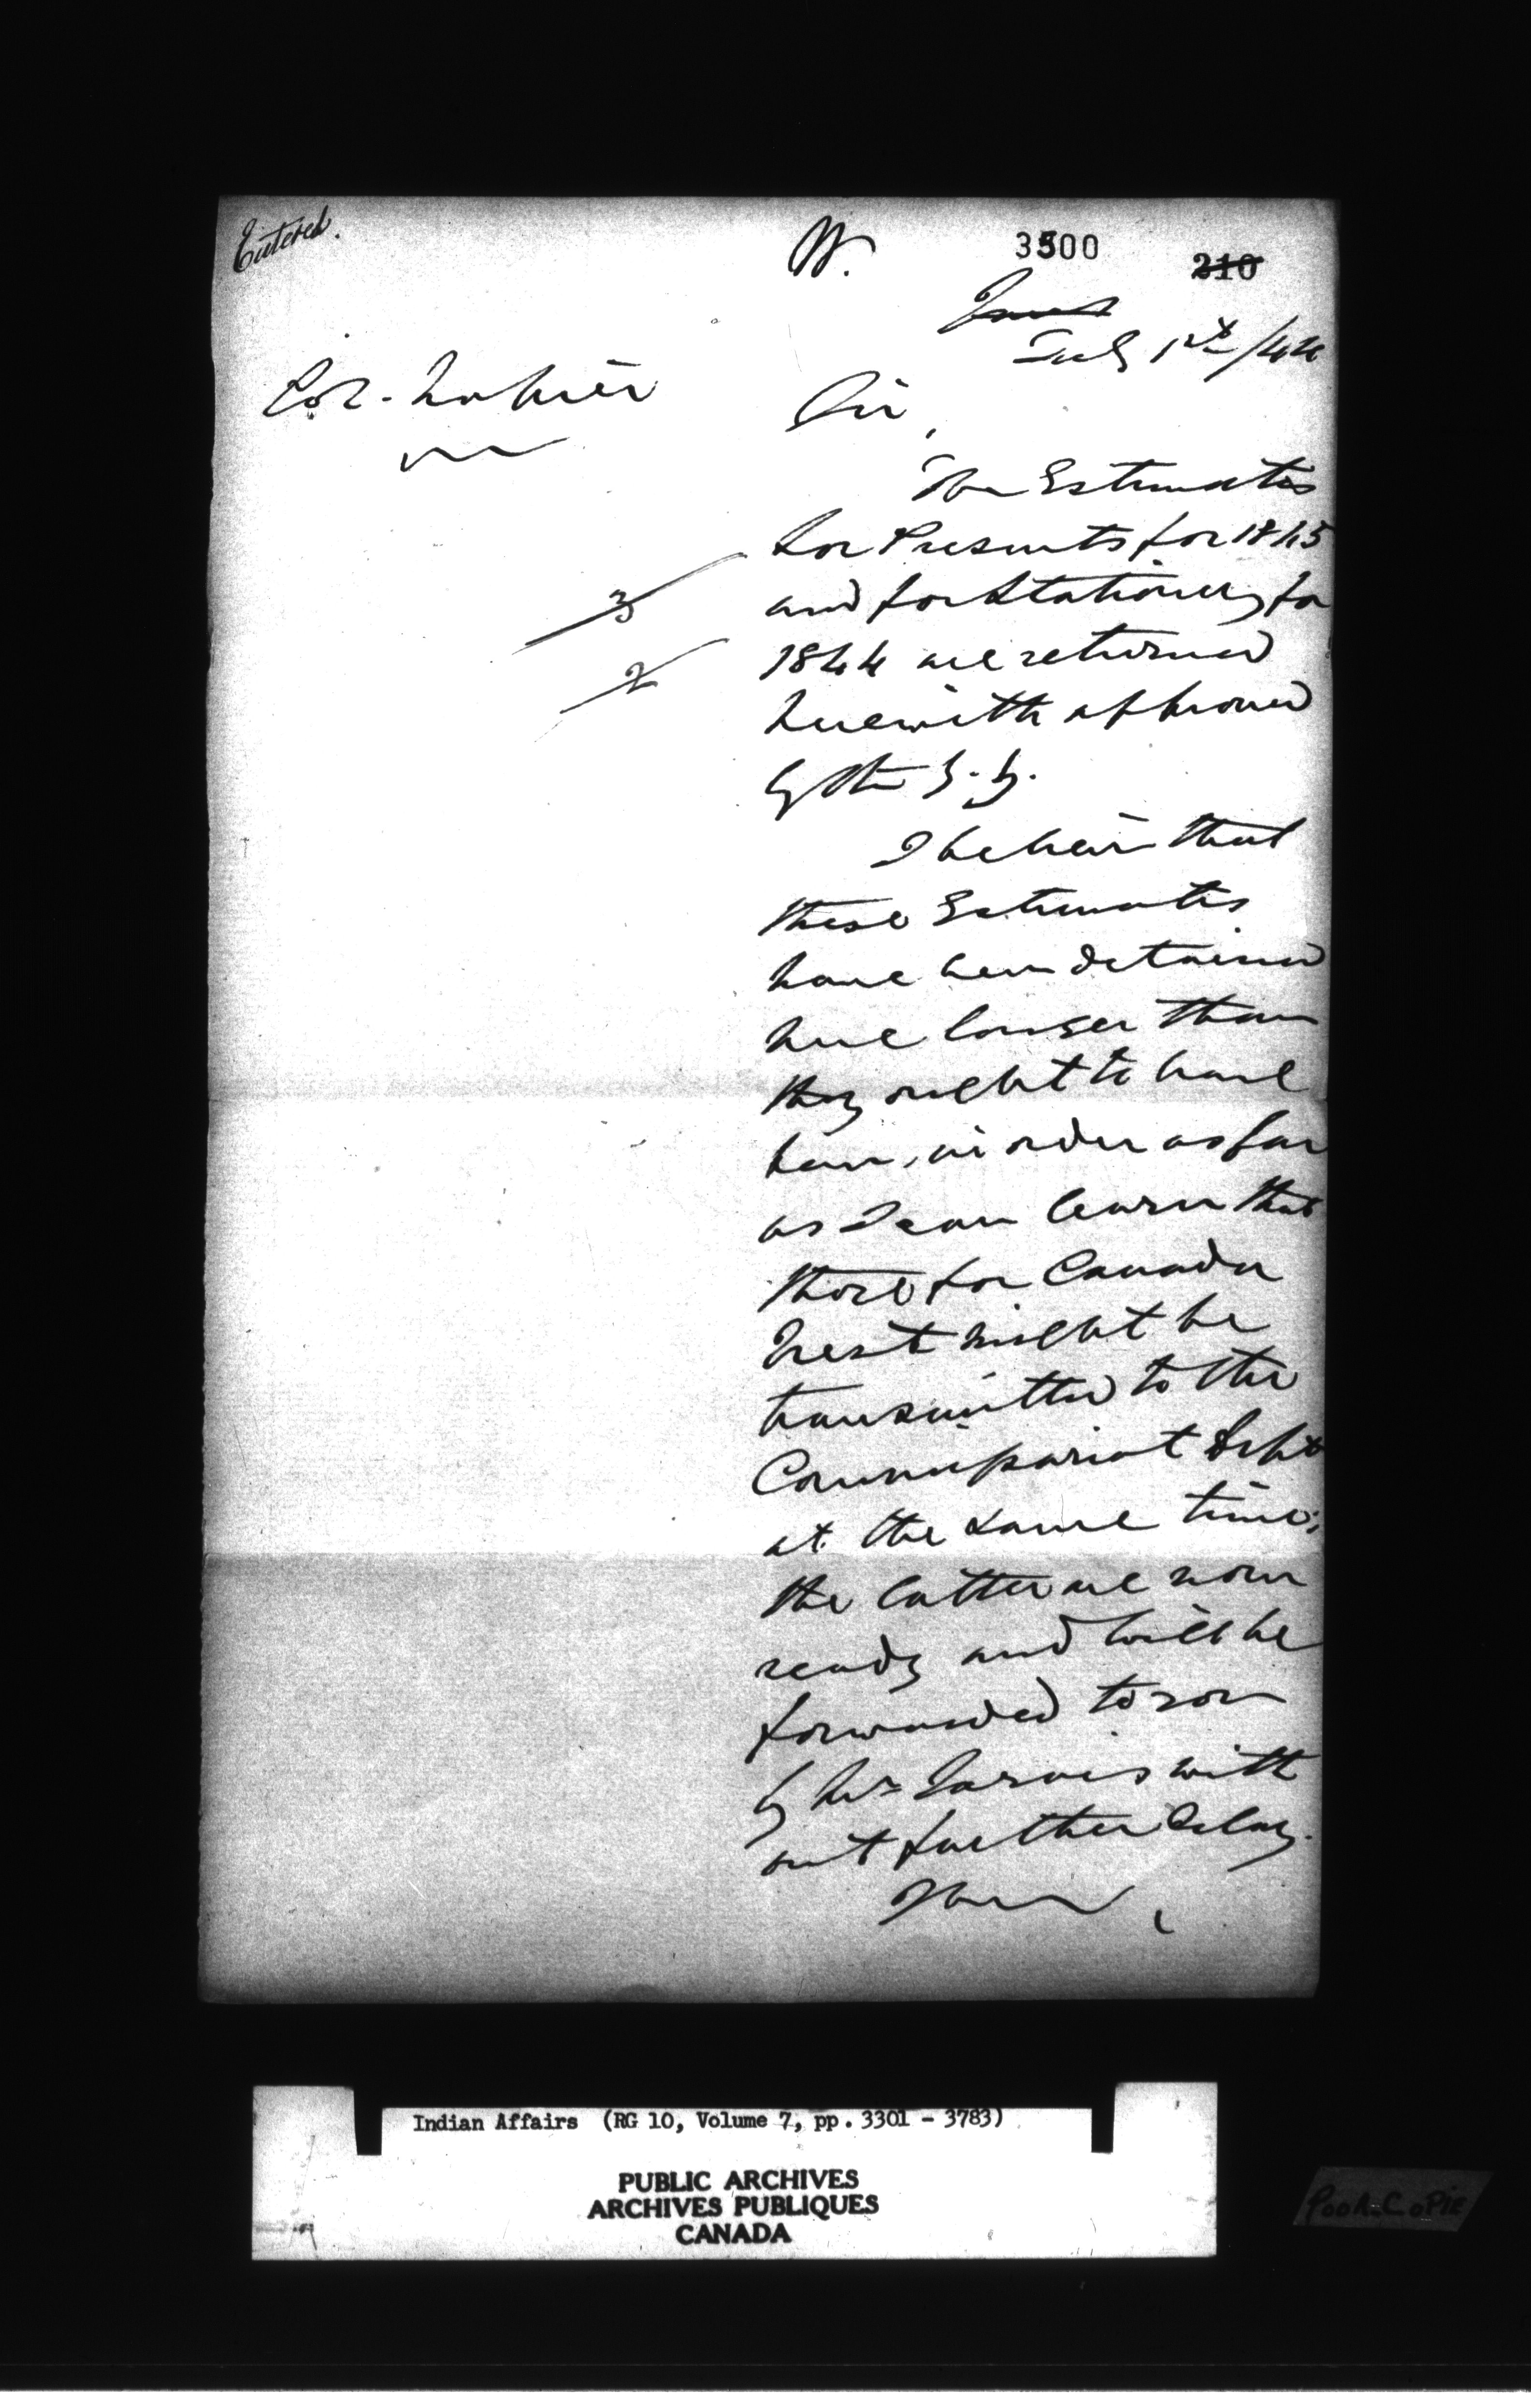 Entered.
W.
3500
210
June
July 1st /44
Col. Napier
Sir,
The Estimates
for Presents for 1845
and for Stationery for
1844 are returned
herewith approved
by the G. G.
3
2
I believe that
these Estimates
have been detained
here longer than
they ought to have
been, in order as far
as I can learn that
those for Canada
West might be
transmitted to the
Commissariat Dept
at the same time;
the latter are now
ready and will be
forwarded to you
by Mr Jarvis with
out further delay.
I have
Indian Affairs (RG 10, Volume 7, pp. 3301 - 3783)
PUBLIC ARCHIVES
ARCHIVES PUBLIQUES
CANADA
POOR COPIE